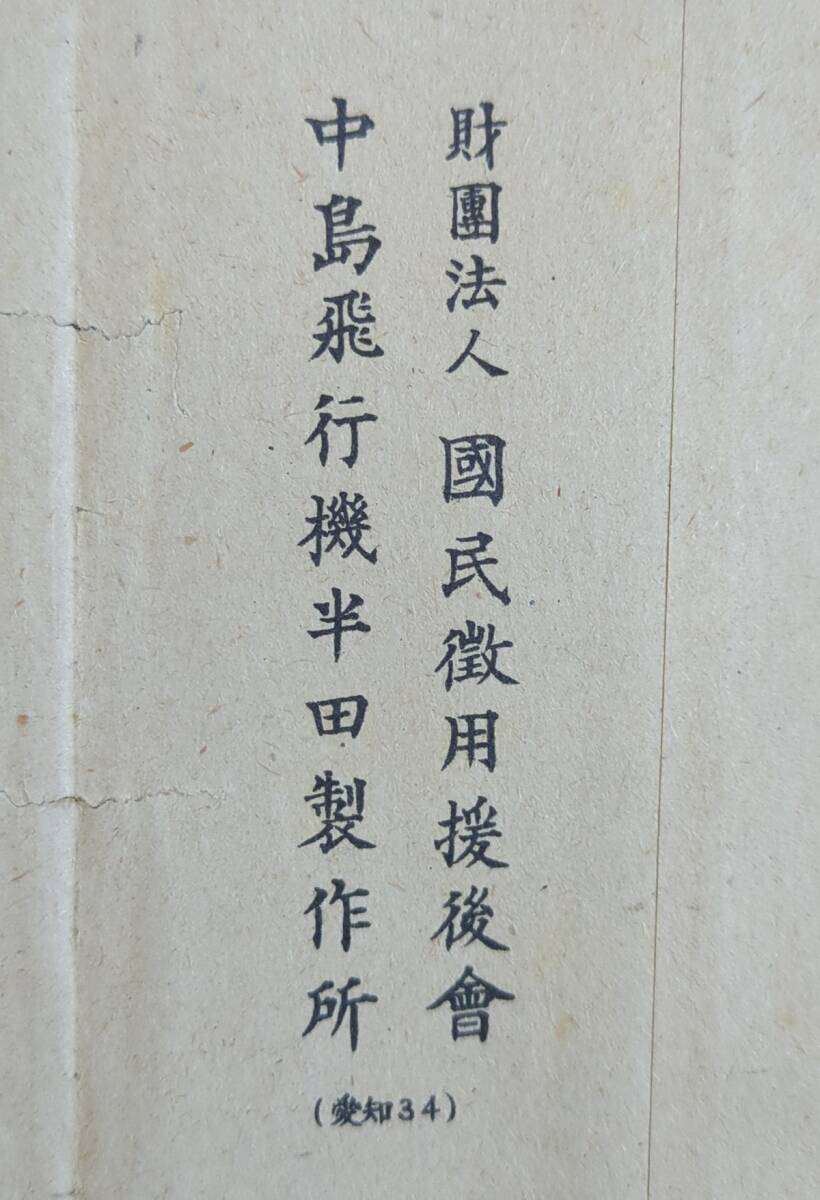 財團法人 國民徵用援後會
中島飛行機半田製作所
(愛知34)